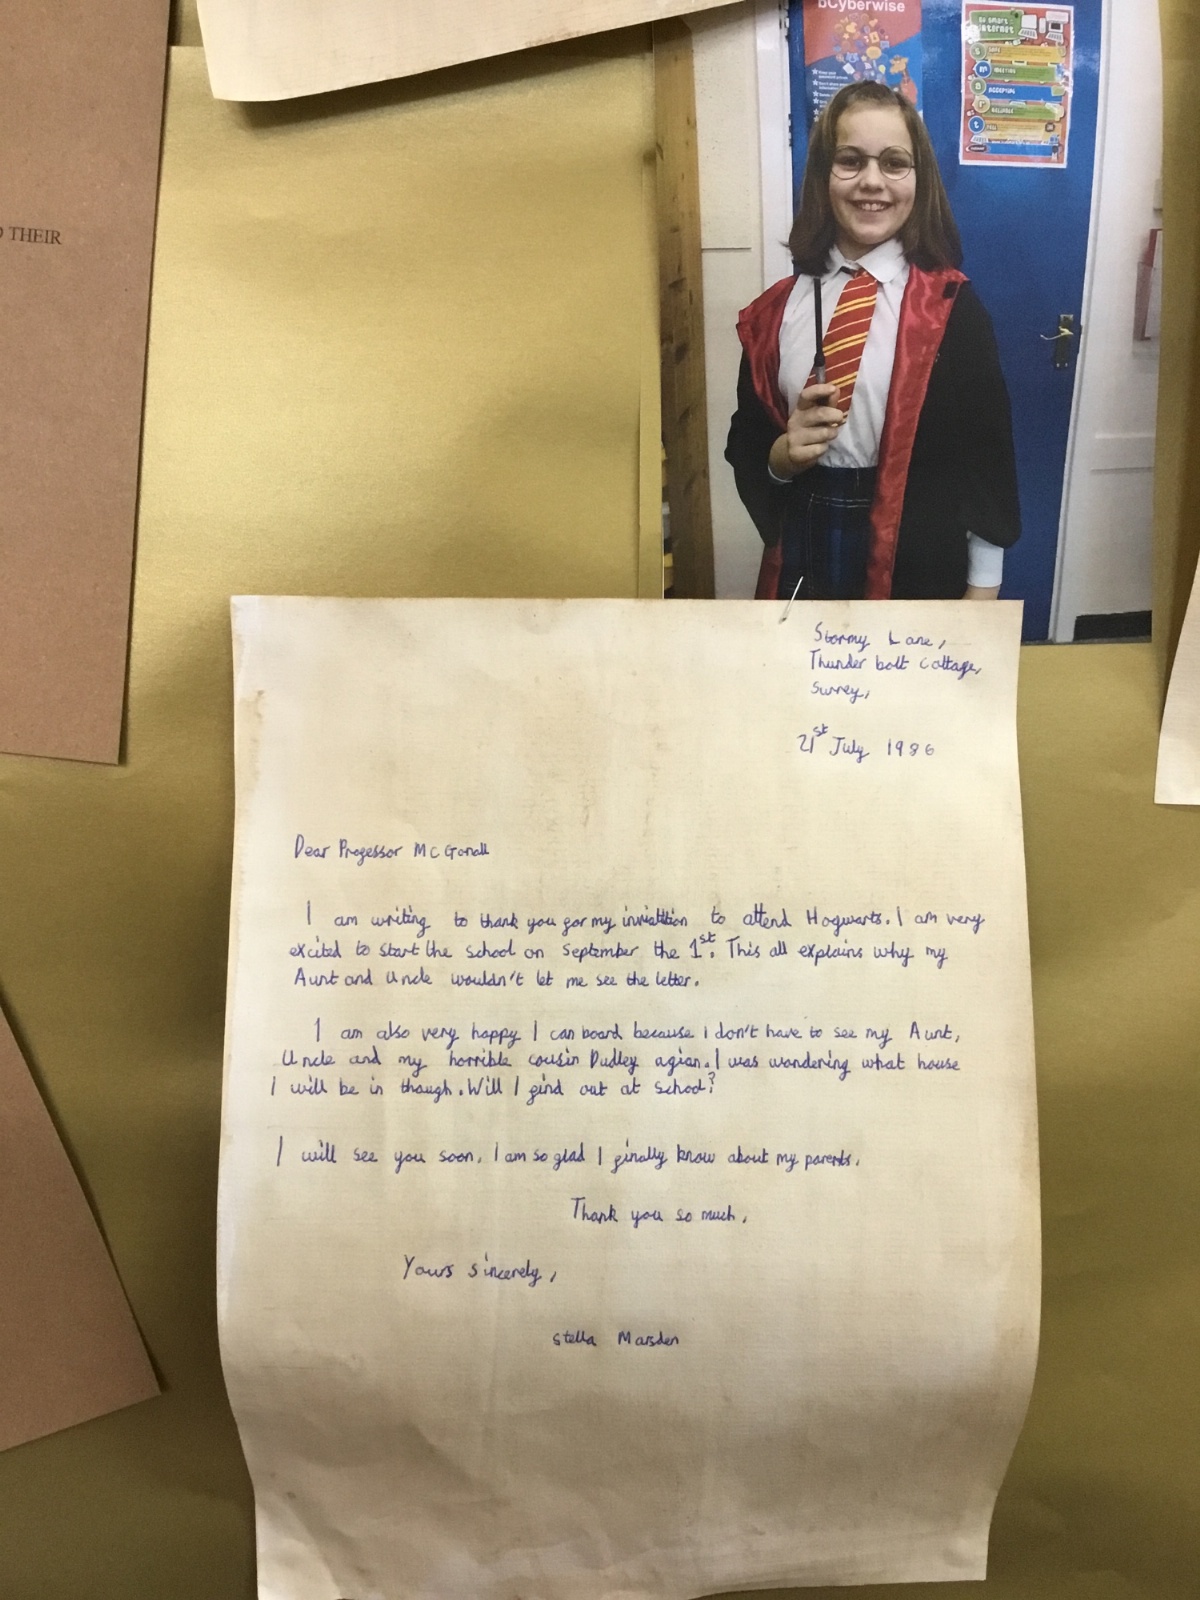 bCyberwise
Be smart
internet
S SAFE
m MEETING
a ACCEPTING
r RELIABLE
t TELL
THEIR
Stormy Lane,
Thunder bolt Cottage,
Surrey,
21st July 1986
Dear Progessor McGonall
I am writing to thank you gor my to attend Hogwarts. I am very
excited to start the school on September the 1st. This all explains why my
Aunt and Uncle wouldn't let me see the letter.
I am also very happy I can board because i don't have to see my Aunt,
Uncle and my horrible cousin Dudley agian. I was wondering what house
I will be in though. Will I gind out at school?
I will see you soon. I am so glad I ginally know about my parents.
Thank you so much,
Yours sincerely,
Stella Marsden